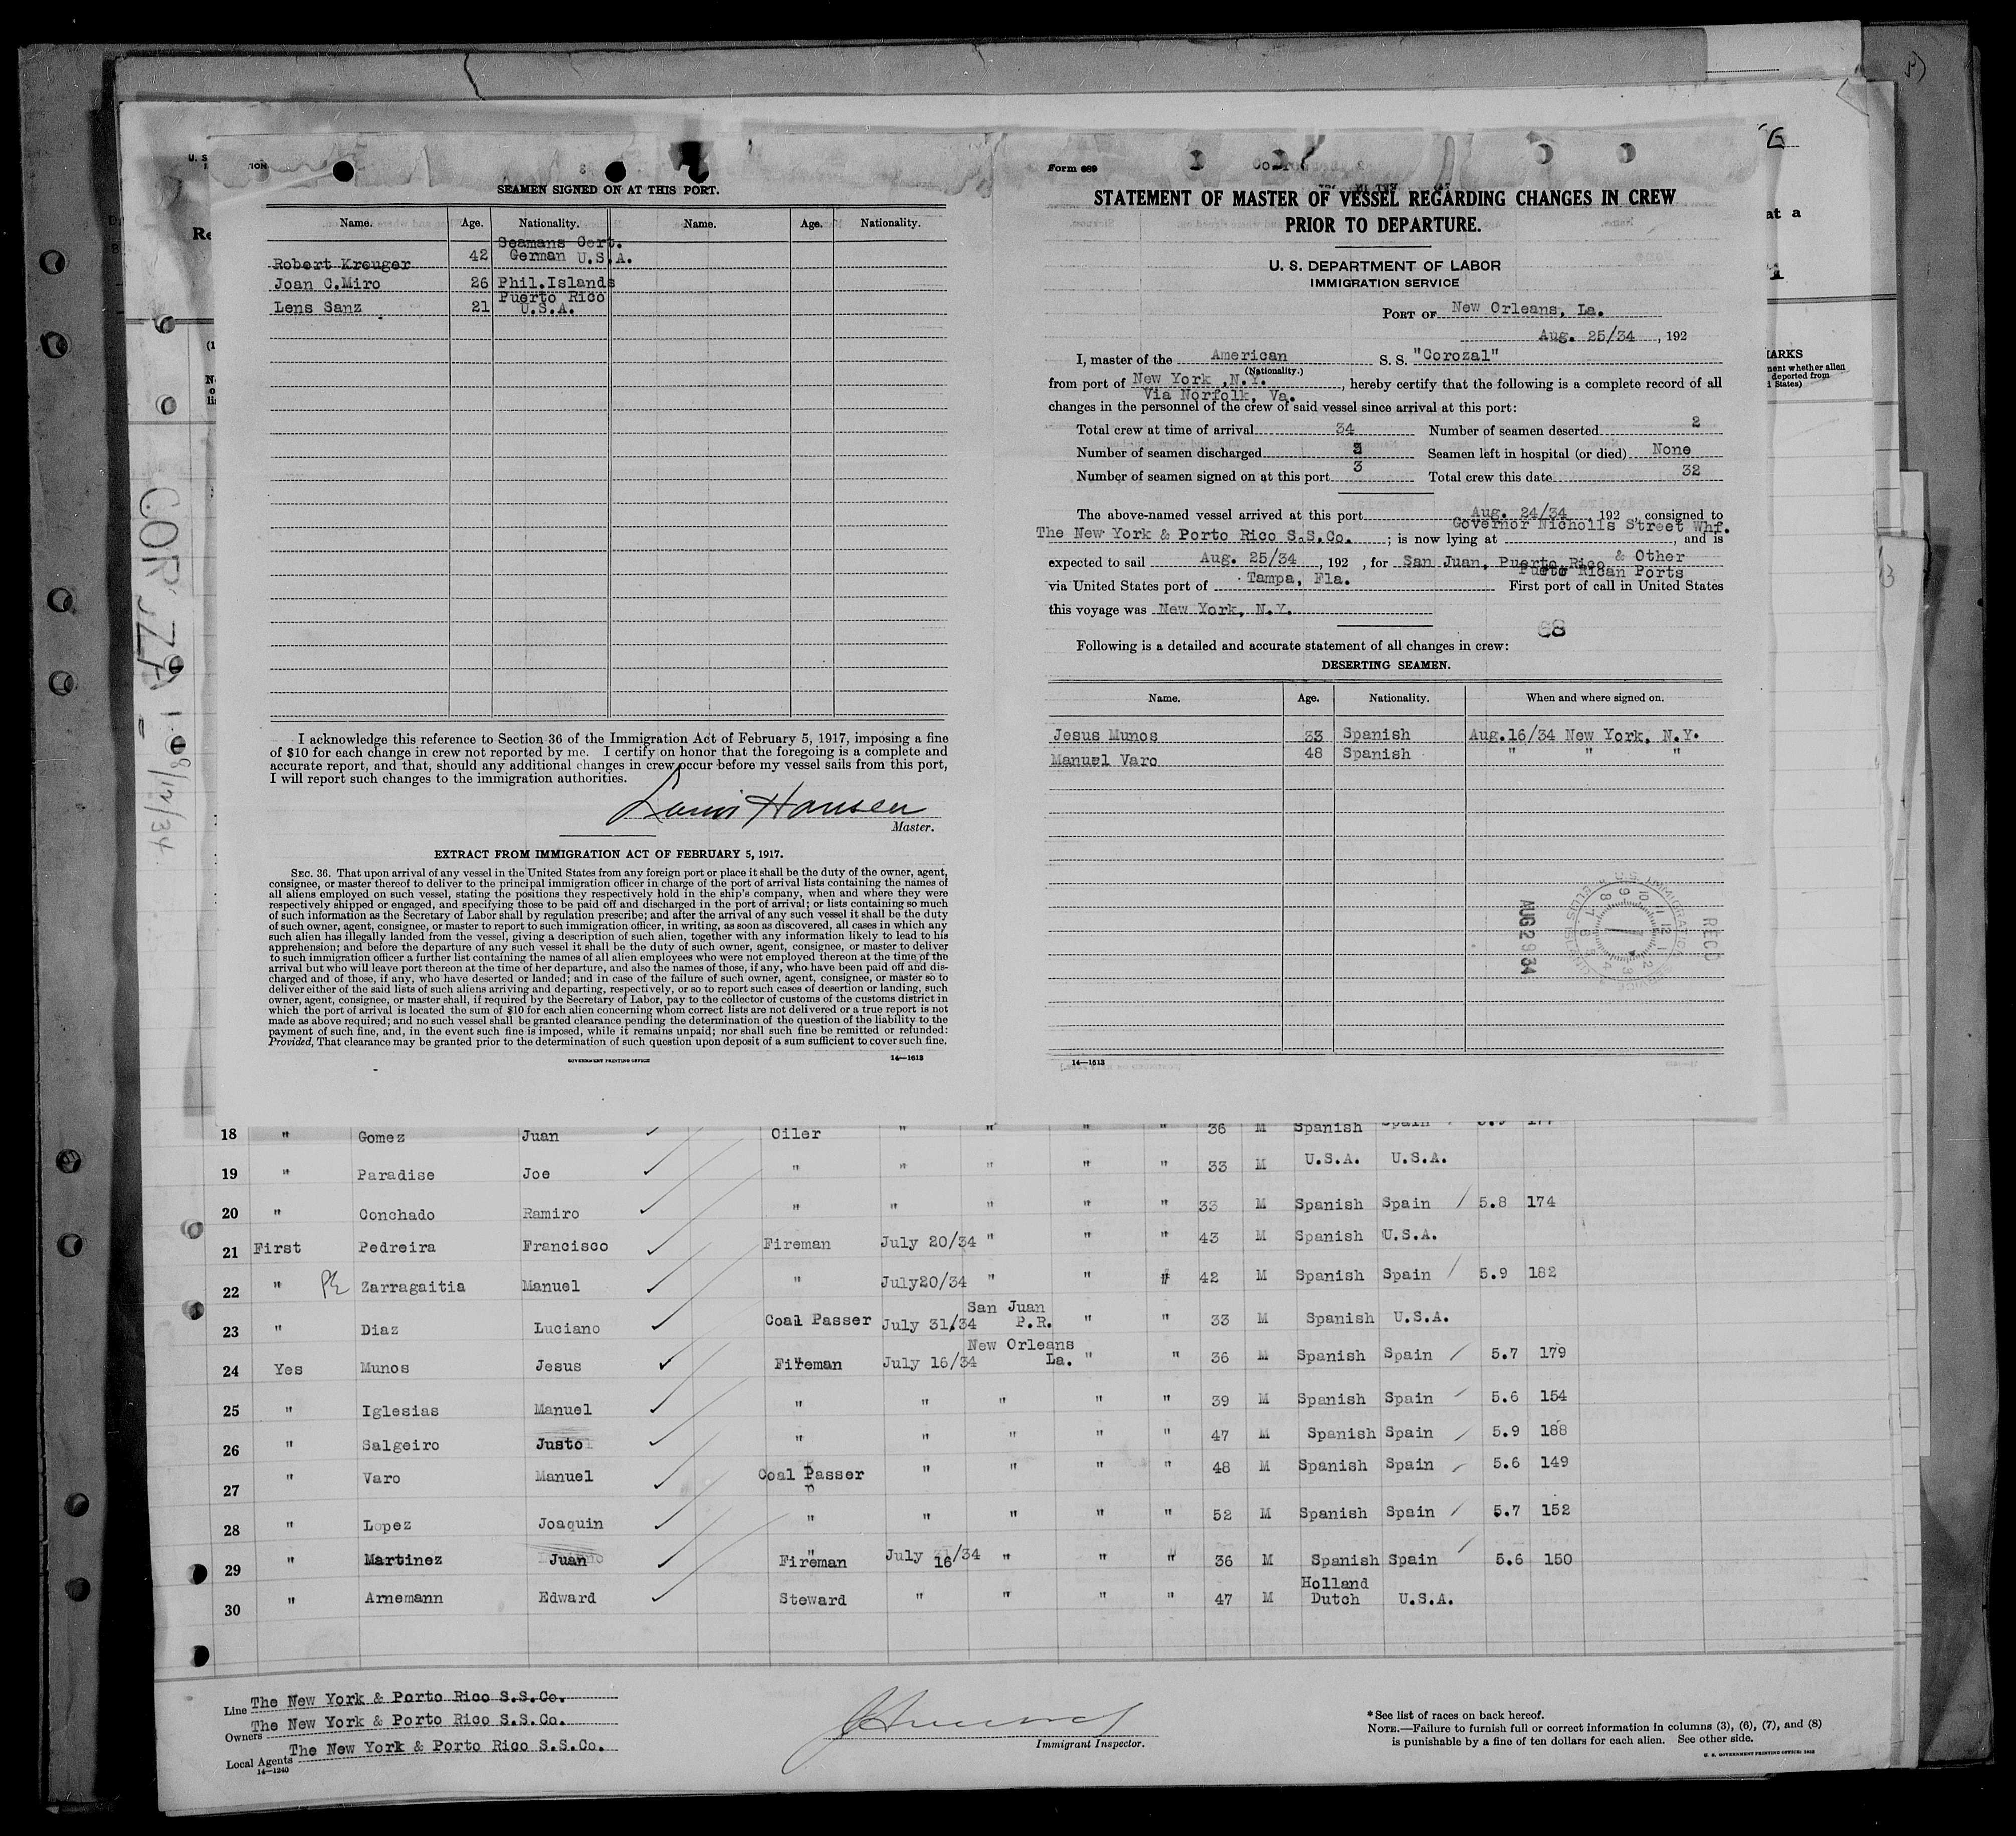 SEAMEN SIGNED ON AT THIS PORT.
Name. Age. Nationality. Name. Age. Nationality.
Robert Kreuger 42 Seamans Cert. German U.S.A.
Joan C.Miro 26 Phil.Islands
Lens Sanz 21 Puerto Rico U.S.A.
I acknowledge this reference to Section 36 of the Immigration Act of February 5, 1917, imposing a fine
of $10 for each change in crew not reported by me. I certify on honor that the foregoing is a complete and
accurate report, and that, should any additional changes in crew occur before my vessel sails from this port,
I will report such changes to the immigration authorities.
Louis Hansen
Master.
EXTRACT FROM IMMIGRATION ACT OF FEBRUARY 5, 1917.
SEC. 36. That upon arrival of any vessel in the United States from any foreign port or place it shall be the duty of the owner, agent,
consignee, or master thereof to deliver to the principal immigration officer in charge of the port of arrival lists containing the names of
all aliens employed on such vessel, stating the positions they respectively hold in the ship's company, when and where they were
respectively shipped or engaged, and specifying those to be paid off and discharged in the port of arrival; or lists containing so much
of such information as the Secretary of Labor shall by regulation prescribe; and after the arrival of any such vessel it shall be the duty
of such owner, agent, consignee, or master to report to such immigration officer, in writing, as soon as discovered, all cases in which any
such alien has illegally landed from the vessel, giving a description of such alien, together with any information likely to lead to his
apprehension; and before the departure of any such vessel it shall be the duty of such owner, agent, consignee, or master to deliver
to such immigration officer a further list containing the names of all alien employees who were not employed thereon at the time of the
arrival but who will leave port thereon at the time of her departure, and also the names of those, if any, who have been paid off and dis-
charged and of those, if any, who have deserted or landed; and in case of the failure of such owner, agent, consignee, or master so to
deliver either of the said lists of such aliens arriving and departing, respectively, or so to report such cases of desertion or landing, such
owner, agent, consignee, or master shall, if required by the Secretary of Labor, pay to the collector of customs of the customs district in
which the port of arrival is located the sum of $10 for each alien concerning whom correct lists are not delivered or a true report is not
made as above required; and no such vessel shall be granted clearance pending the determination of the question of the liability to the
payment of such fine, and, in the event such fine is imposed, while it remains unpaid; nor shall such fine be remitted or refunded:
Provided, That clearance may be granted prior to the determination of such question upon deposit of a sum sufficient to cover such fine.
GOVERNMENT PRINTING OFFICE 14—1613
Form 689
STATEMENT OF MASTER OF VESSEL REGARDING CHANGES IN CREW
PRIOR TO DEPARTURE.
U. S. DEPARTMENT OF LABOR
IMMIGRATION SERVICE
PORT OF New Orleans, La.
Aug. 25/34 , 192
I, master of the American S. S. "Corozal"
(Nationality.)
from port of New York ,N.Y. , hereby certify that the following is a complete record of all
Via Norfolk, Va.
changes in the personnel of the crew of said vessel since arrival at this port:
Total crew at time of arrival 34 Number of seamen deserted 2
Number of seamen discharged 3 Seamen left in hospital (or died) None
Number of seamen signed on at this port 3 Total crew this date 32
The above-named vessel arrived at this port Aug. 24/34 , 192 , consigned to
Governor Nicholls Street Whf.
The New York & Porto Rico S.S.Co. ; is now lying at , and is
expected to sail Aug. 25/34 , 192 , for San Juan, Puerto Rico & Other
Puerto Rican Ports
via United States port of Tampa, Fla. First port of call in United States
this voyage was New York, N.Y.
68
Following is a detailed and accurate statement of all changes in crew:
DESERTING SEAMEN.
Name. Age. Nationality. When and where signed on.
Jesus Munos 33 Spanish Aug.16/34 New York, N.Y.
Manuel Varo 48 Spanish " " "
REC'D
AUG 29 34
U.S. IMMIGRATION SERVICE
14—1613
COROZAL
8/17/34
18 " Gomez Juan Oiler " " " " 36 M Spanish Spain
19 " Paradise Joe " " " " " 33 M U.S.A. U.S.A.
20 " Conchado Ramiro " " " " " 33 M Spanish Spain 5.8 174
21 First Pedreira Francisco Fireman July 20/34 " " " 43 M Spanish U.S.A.
22 " Zarragaitia Manuel " July20/34 " " " 42 M Spanish Spain 5.9 182
23 " Diaz Luciano Coal Passer July 31/34 San Juan P.R. " " 33 M Spanish U.S.A.
24 Yes Munos Jesus Fireman July 16/34 New Orleans La. " " 36 M Spanish Spain 5.7 179
25 " Iglesias Manuel " " " " " 39 M Spanish Spain 5.6 154
26 " Salgeiro Justo " " " " " 47 M Spanish Spain 5.9 188
27 " Varo Manuel Coal Passer " " " " 48 M Spanish Spain 5.6 149
28 " Lopez Joaquin " " " " " 52 M Spanish Spain 5.7 152
29 " Martinez Juan Fireman July 16/34 " " " 36 M Spanish Spain 5.6 150
30 " Arnemann Edward Steward " " " " 47 M Holland Dutch U.S.A.
Line The New York & Porto Rico S.S.Co.
Owners The New York & Porto Rico S.S.Co.
Local Agents The New York & Porto Rico S.S.Co.
14—1240
Immigrant Inspector.
*See list of races on back hereof.
NOTE.—Failure to furnish full or correct information in columns (3), (6), (7), and (8)
is punishable by a fine of ten dollars for each alien. See other side.
U. S. GOVERNMENT PRINTING OFFICE: 1932